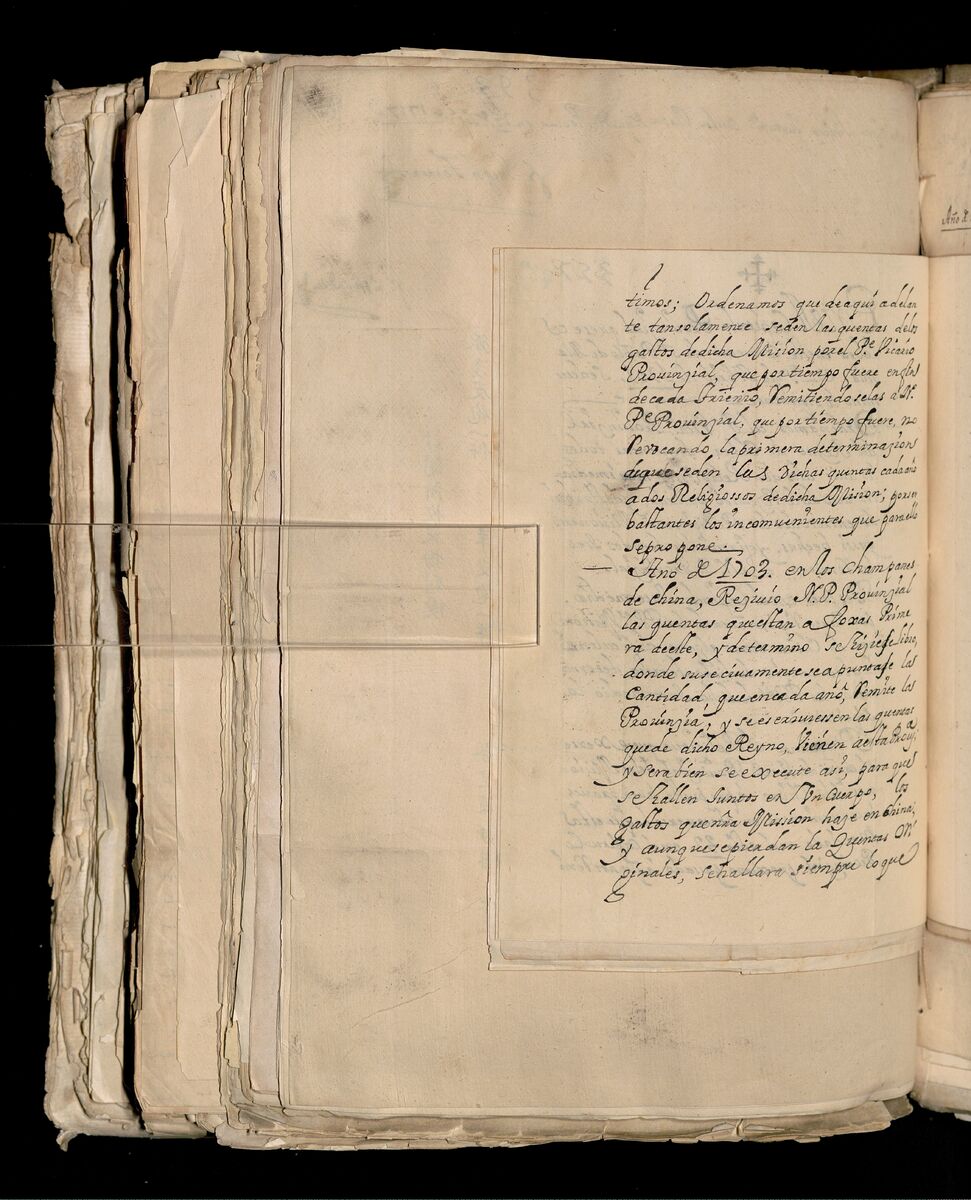 timos; Ordenamos que de aqui adelan
te tansolamente seden las quentas delos
gastos dedicha Mision por el Pe. Vicario
Provinzial, que por tiempo fuere en fin
decada trienio, Remitiendoselas a N.
Pe Provinzial, que por tiempo fuere, no
Revocando la primera determinazion
dique seden las dichas quentas cada año
a dos Religiossos dedicha Mision; por ser
bastantes los incomvenientes que para ello
sepropone.
Año de 1703. en los Champanes
de China, Rezivio N. P. Provinzial
las quentas que estan a foxas Prime
ra de este, y determino se hiziese libro,
donde susecivamente se apuntase las
Cantidad, que en cada año, Remite la
Provinzia, y se escriviessen las quentas
que de dicho Reyno, vienen a esta Prova.
y sera bien se execute asi, para que
se hallen Juntos en Un Cuerpo, los
gastos que nra Mission haze en China,
y aunque se pierdan la Quentas Ori
ginales, se hallara siempre lo que
Año d